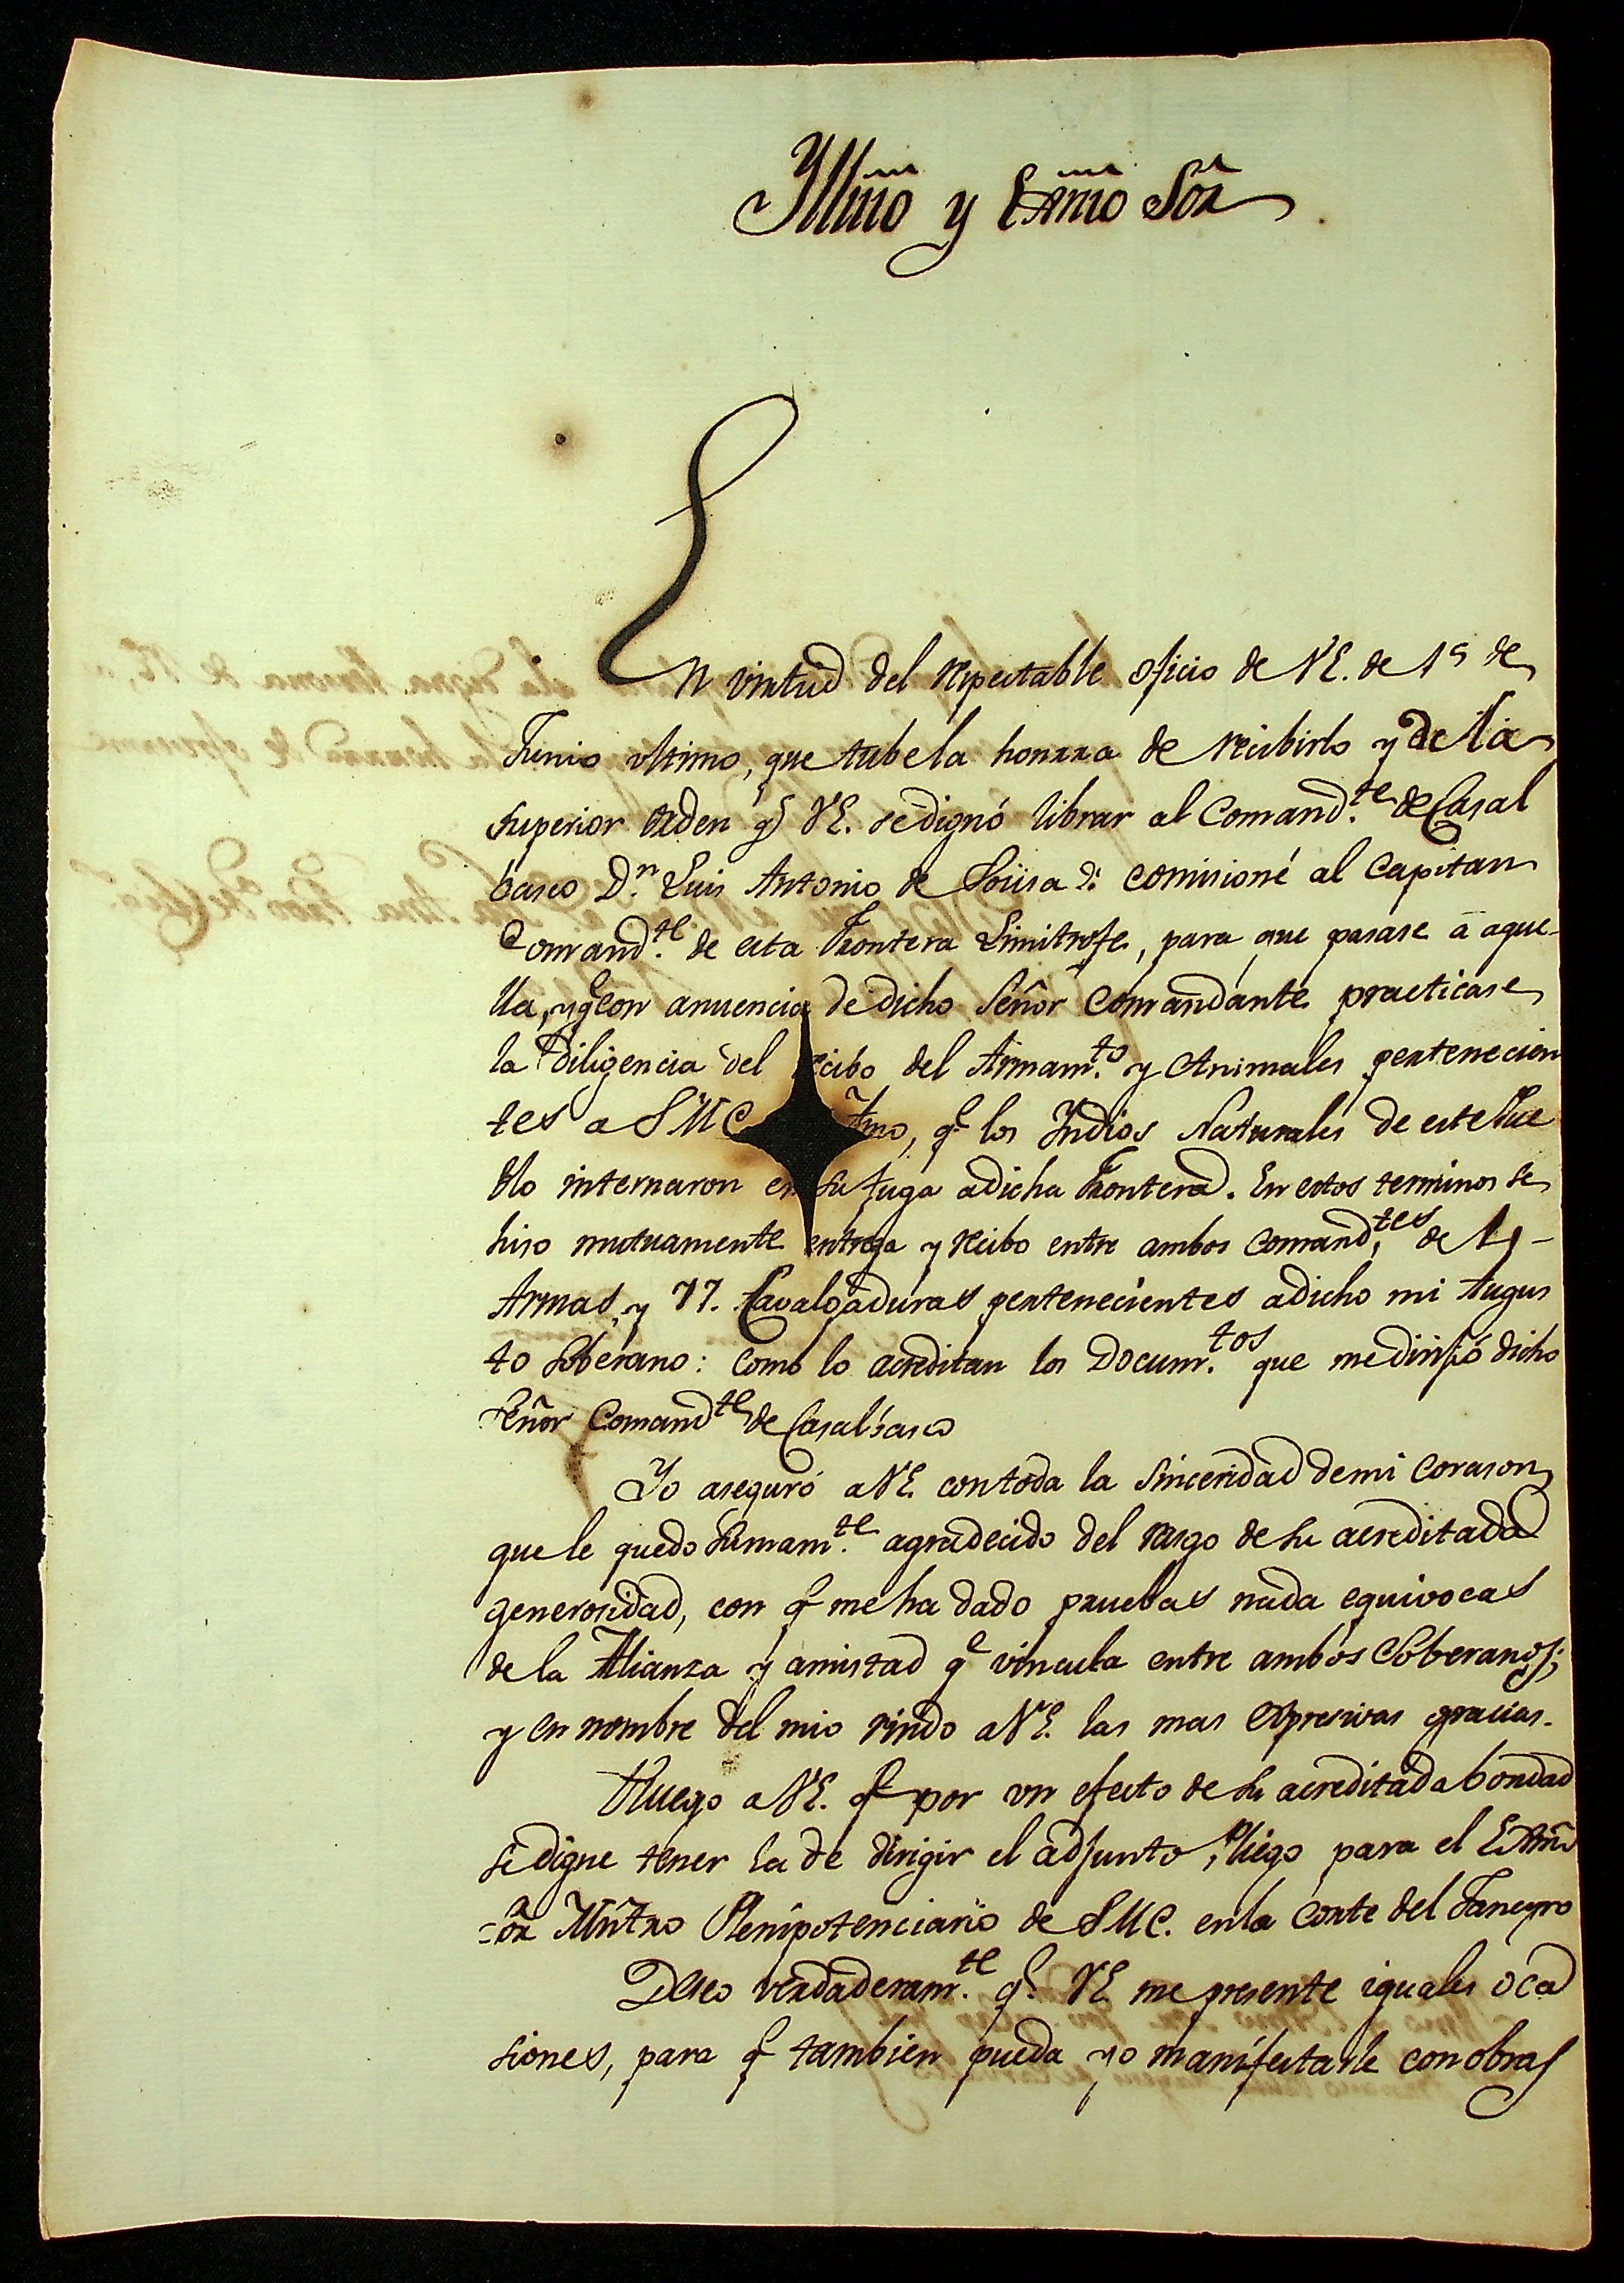 Yllmo y Exmo Sor.
En virtud del respectable oficio de VE. de 1º de
Junio ultimo, que tube la honrra de reicibirlo y de la
superior orden q.e VE. se dignó librar al Comand.te de Casal
basco D.n Luis Antonio de Sousa comisioné al Capitan
Comand.te de esta Frontera Limitrofe, para que pasase â aque-
lla, y q.e con anuencia de dicho Señor Comandante practicase
la diligencia del recibo del Armam.to y Animales pertenecien
tes a SMC Amo, q.e los Yndios Naturales de este Pue
blo internaron en su fuga a dicha Frontera. En estos terminos se
hiso mutuamente entrega y recibo entre ambos Comand.tes de
Armas, y 77. Cavalgaduras pertenecientes a dicho mi Augus
to Soberano: como lo acreditan los Docum.tos que me dirijió dicho
Señor Comand.te de Casalbasco
Yo aseguro a VE. con toda la sinceridad de mi corason
que le quedo sumam.te agradecido del rasgo de su acreditada
generosidad, con q.e me ha dado pruebas nada equivocas
de la Alianza y amistad q.e vincula entre ambos Soberanos;
y en nombre del mio rindo a VE. las mas expresivas gracias.
Ruego a VE. q.e por un efecto de su acreditada bondad
se digne tener la de dirigir el adjunto Pliego para el Exmo
Sor Mntro Plenipotenciario de SMC. en la Corte del Janeyro
Deseo verdaderam.te q.e VE me presente iguales oca
siones, para q.e tambien pueda yo manifestarle con obras